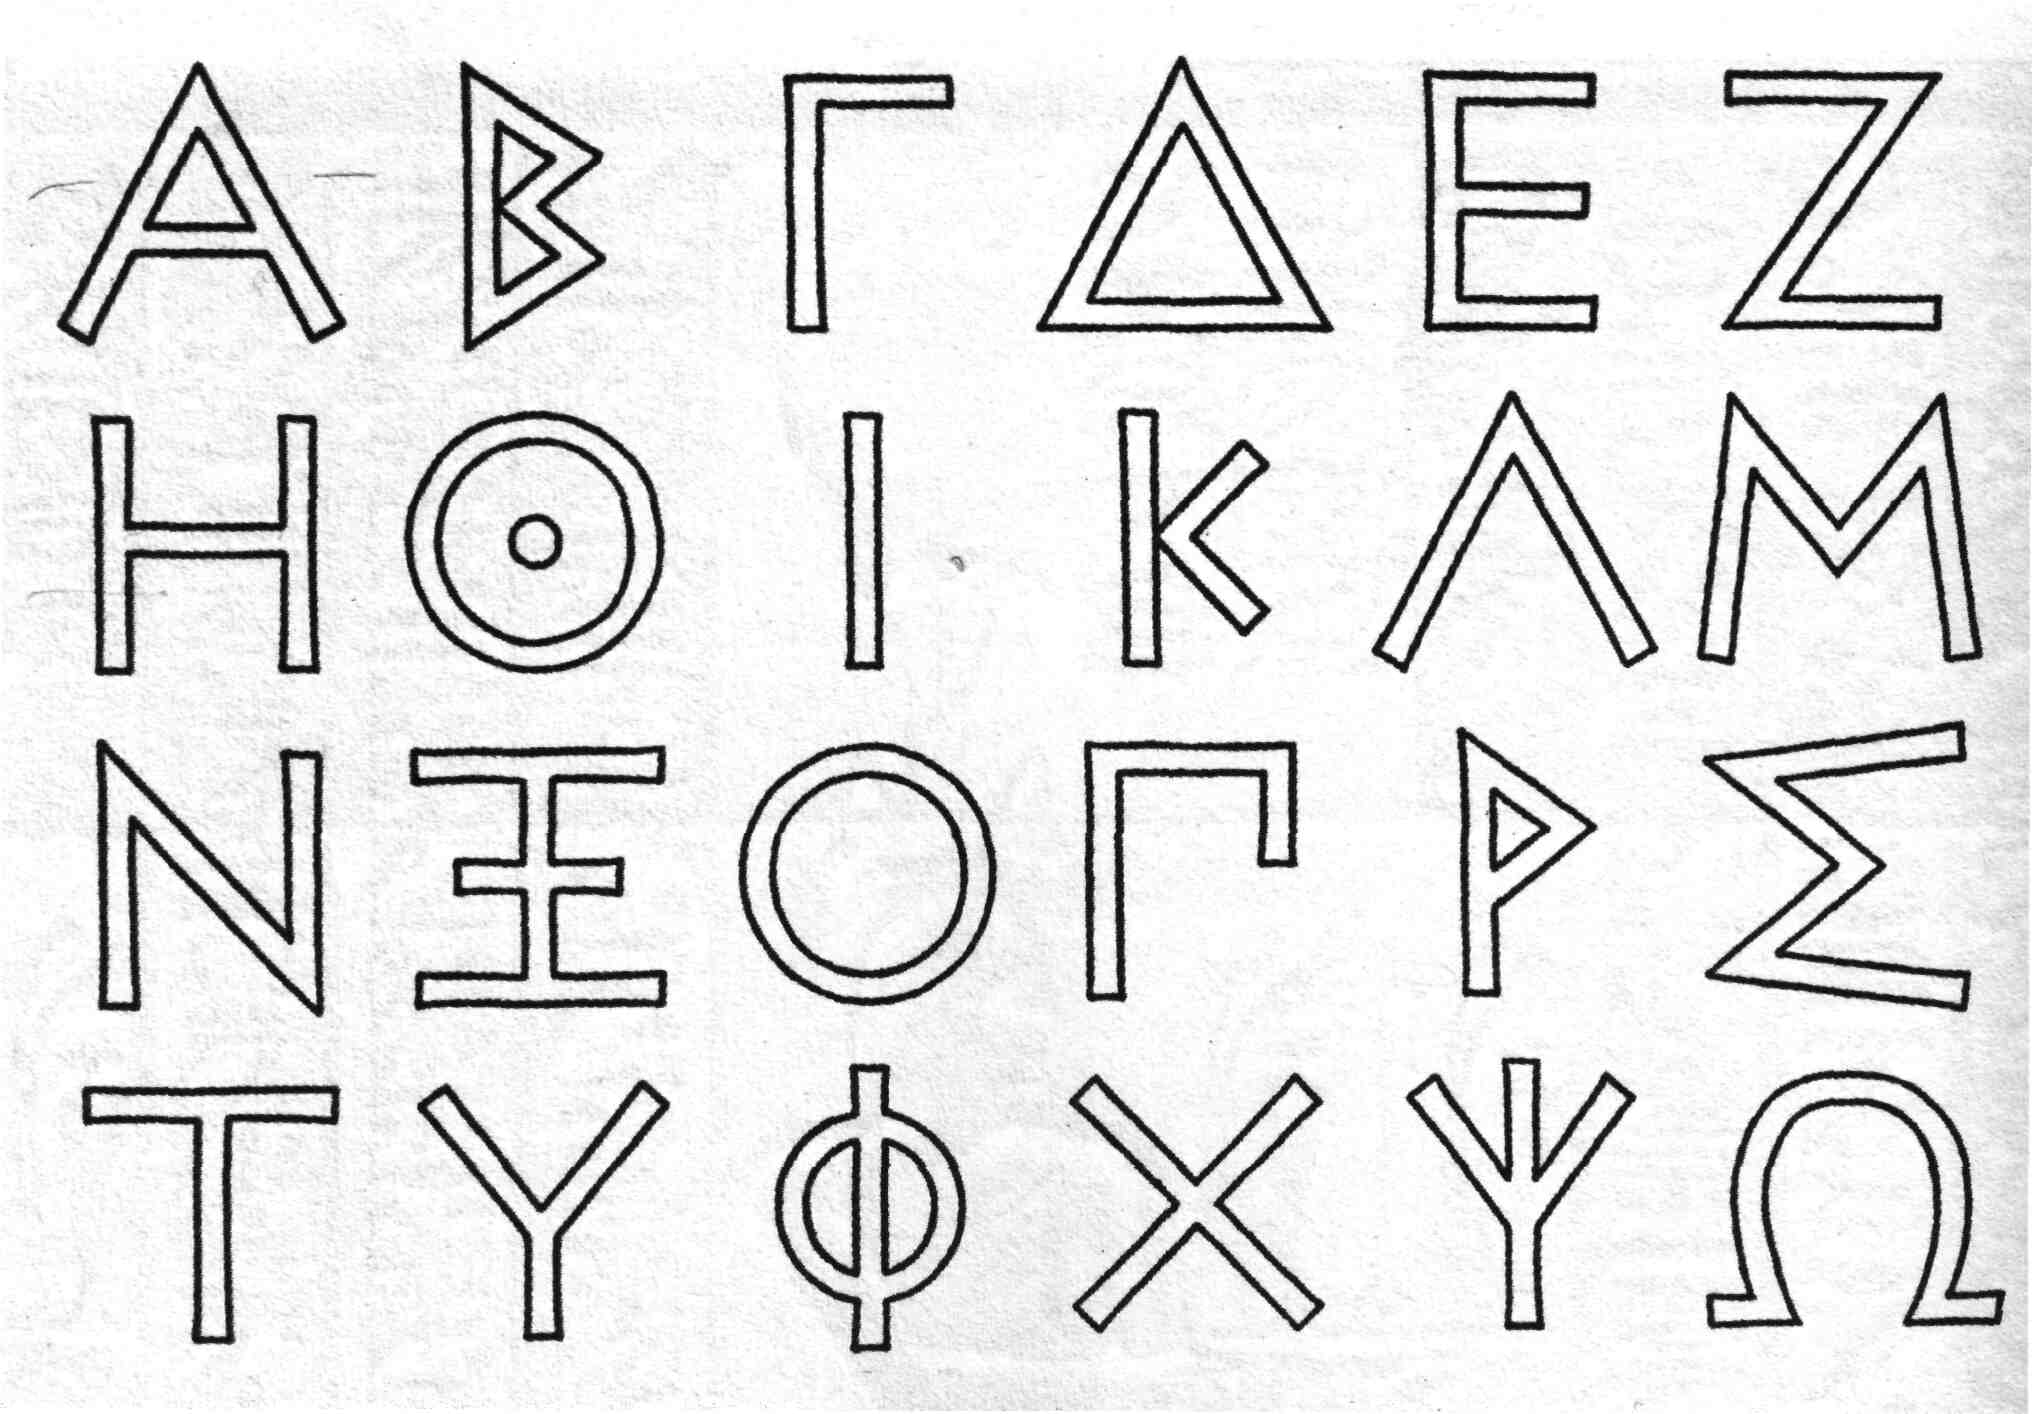 Α Β Γ Δ Ε Ζ
Η Θ Ι Κ Λ Μ
Ν Ξ Ο Π Ρ Σ
Τ Υ Φ Χ Ψ Ω